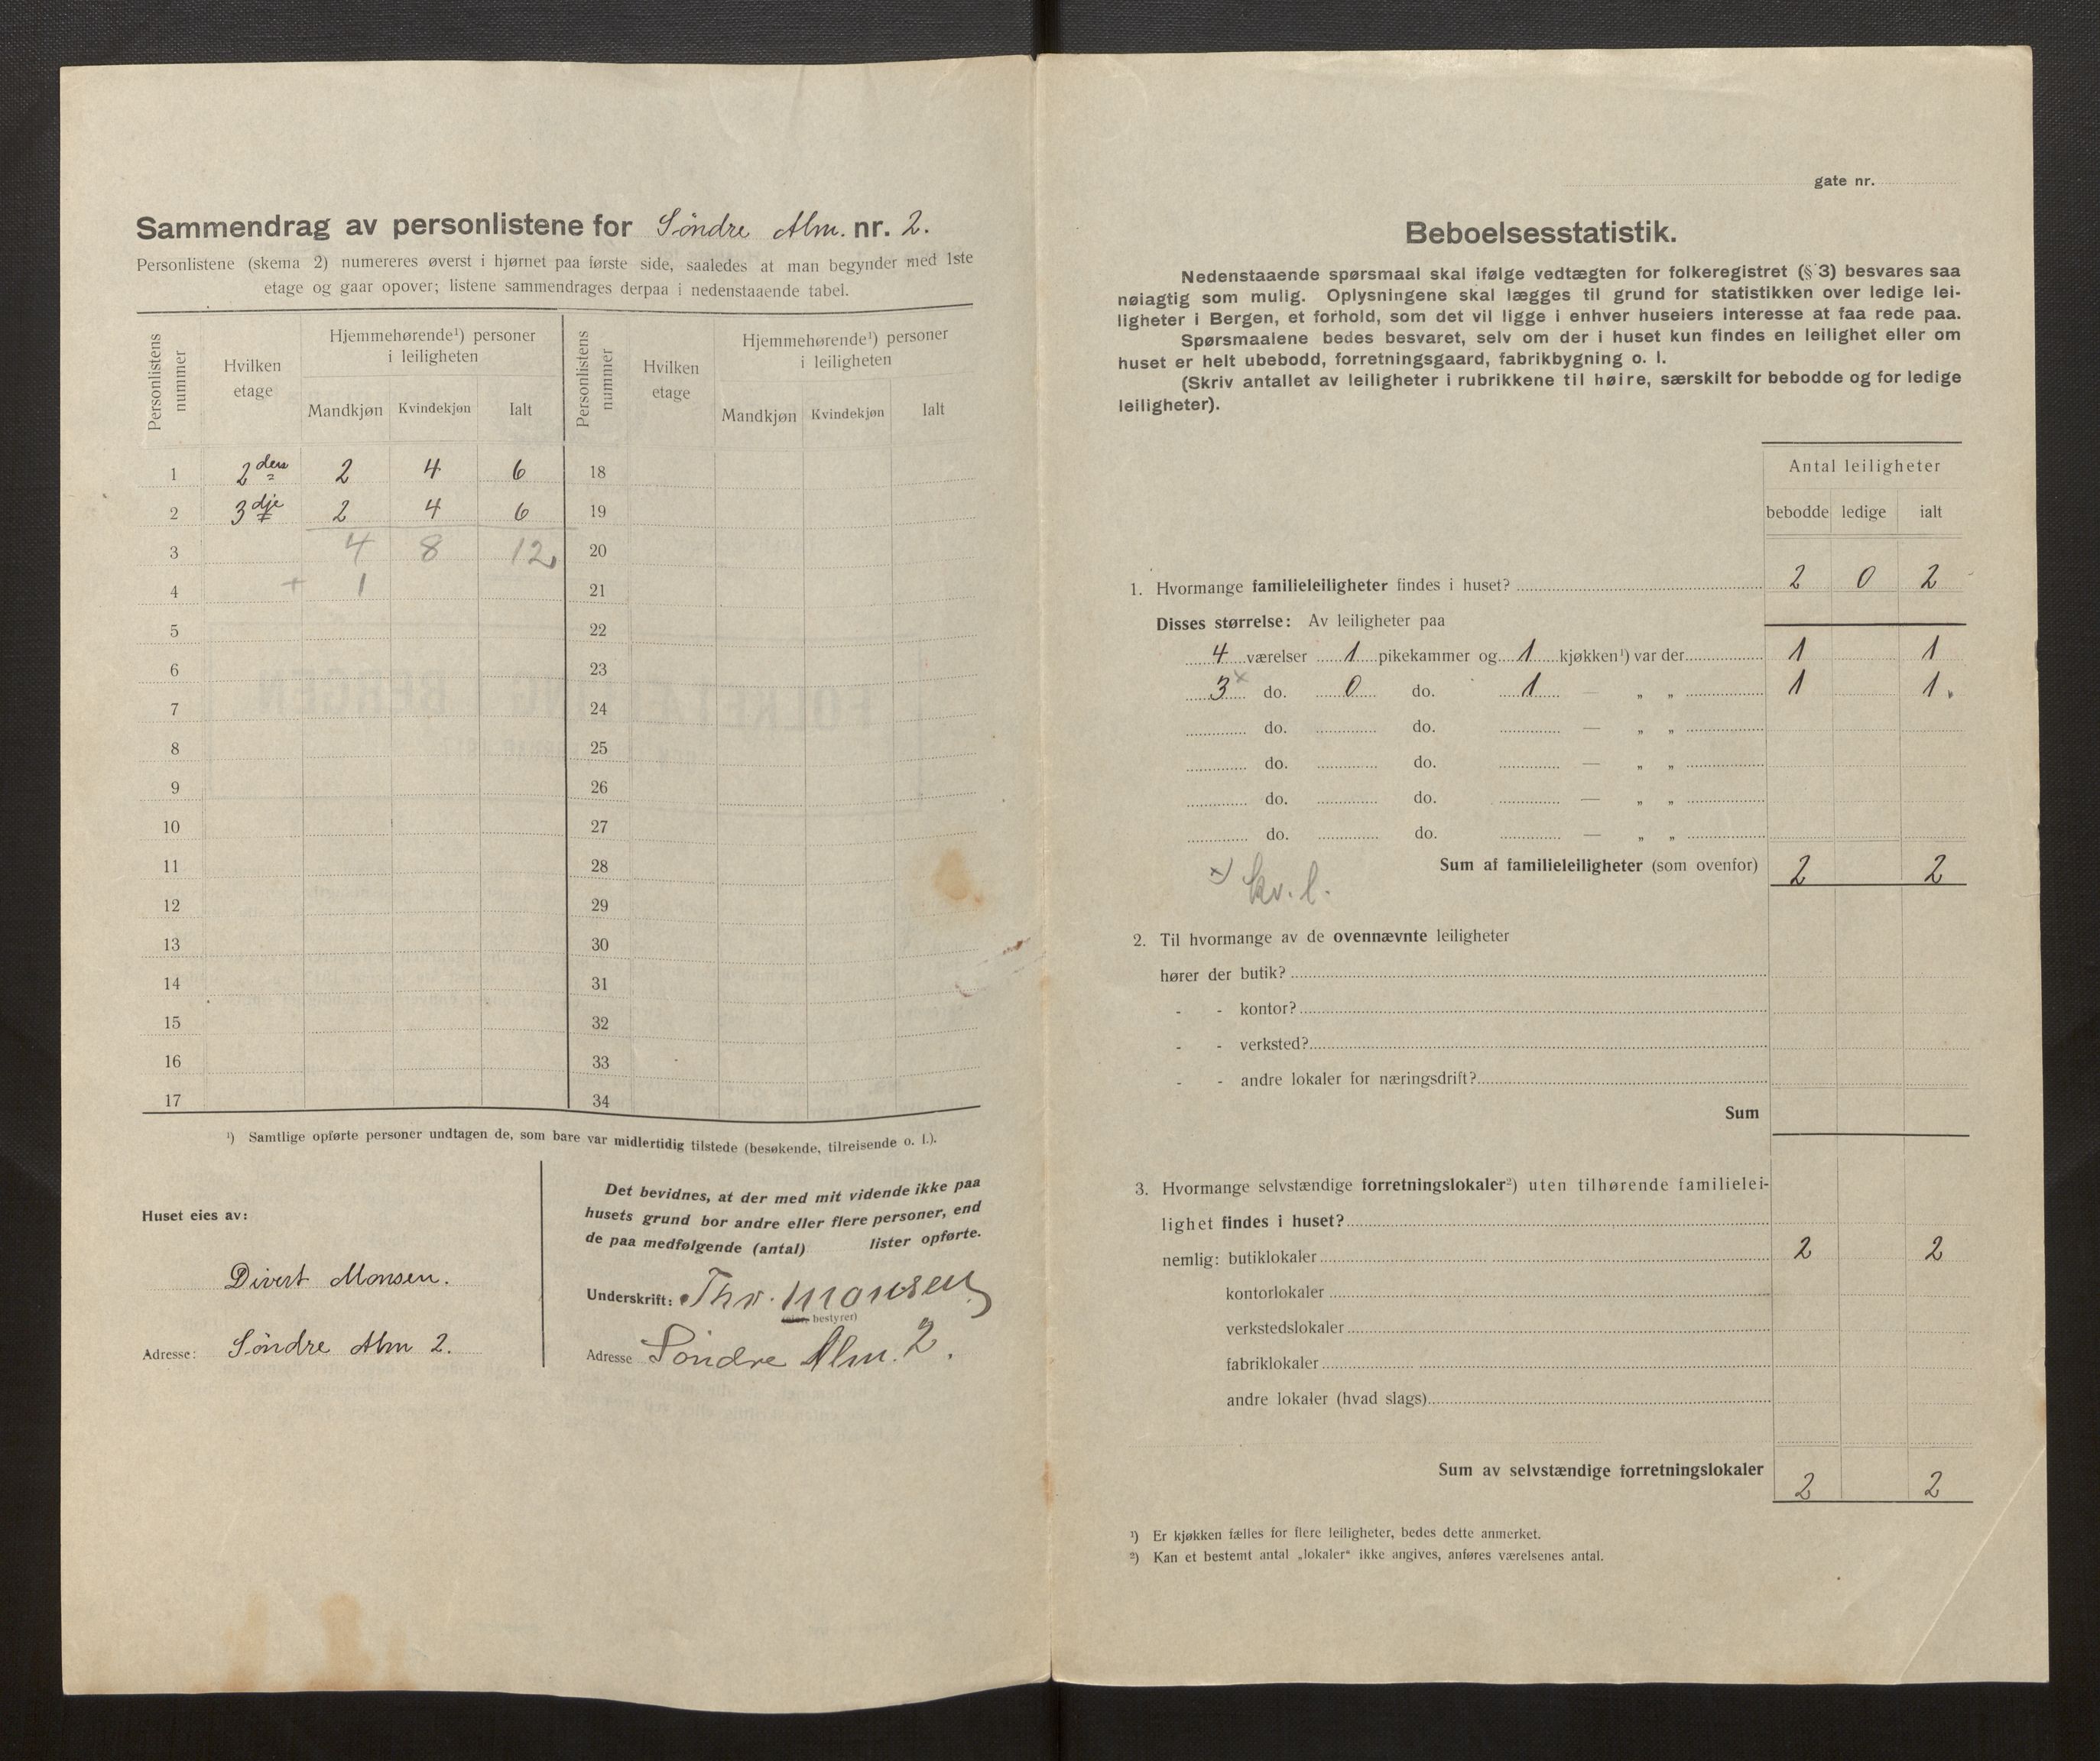 Sammendrag av personlistene for Söndre Alm. nr. 2.
Personlistene (skema 2) numereres øverst i hjørnet paa første side, saaledes at man begynder med 1ste
etage og gaar opover; listene sammendrages derpaa i nedenstaaende tabel.
Personlistens nummer | Hvilken etage | Hjemmehørende¹) personer i leiligheten | Personlistens nummer | Hvilken etage | Hjemmehørende¹) personer i leiligheten
Mandkjøn | Kvindekjøn | Ialt | Mandkjøn | Kvindekjøn | Ialt
1 | 2den | 2 | 4 | 6 | 18
2 | 3dje | 2 | 4 | 6 | 19
3 | 4 | 8 | 12 | 20
4 | + 1 | 21
5 | 22
6 | 23
7 | 24
8 | 25
9 | 26
10 | 27
11 | 28
12 | 29
13 | 30
14 | 31
15 | 32
16 | 33
17 | 34
¹) Samtlige opførte personer undtagen de, som bare var midlertidig tilstede (besøkende, tilreisende o. l.).
Huset eies av:
Divert Monsen.
Adresse: Söndre Alm 2.
Det bevidnes, at der med mit vidende ikke paa
husets grund bor andre eller flere personer, end
de paa medfølgende (antal) lister opførte.
Underskrift: Thv. Monsen
(eier, bestyrer)
Adresse Söndre Alm. 2.
gate nr.
Beboelsesstatistik.
Nedenstaaende spørsmaal skal ifølge vedtægten for folkeregistret (§ 3) besvares saa
nøiagtig som mulig. Oplysningene skal lægges til grund for statistikken over ledige lei-
ligheter i Bergen, et forhold, som det vil ligge i enhver huseiers interesse at faa rede paa.
Spørsmaalene bedes besvaret, selv om der i huset kun findes en leilighet eller om
huset er helt ubebodd, forretningsgaard, fabrikbygning o. l.
(Skriv antallet av leiligheter i rubrikkene til høire, særskilt for bebodde og for ledige
leiligheter).
Antal leiligheter
bebodde | ledige | ialt
1. Hvormange familieleiligheter findes i huset? 2 | 0 | 2
Disses størrelse: Av leiligheter paa
4 værelser 1 pikekammer og 1 kjøkken¹) var der 1 | 1
3 x do. 0 do. 1 — „ „ 1 | 1.
do. do. — „ „
do. do. — „ „
do. do. — „ „
do. do. — „ „
Sum af familieleiligheter (som ovenfor) 2 | 2
x) kv. l.
2. Til hvormange av de ovennævnte leiligheter
hører der butik?
- - kontor?
- - verksted?
- - andre lokaler for næringsdrift?
Sum
3. Hvormange selvstændige forretningslokaler²) uten tilhørende familielei-
lighet findes i huset?
nemlig: butiklokaler 2 | 2
kontorlokaler
verkstedslokaler
fabriklokaler
andre lokaler (hvad slags)
Sum av selvstændige forretningslokaler 2 | 2
¹) Er kjøkken fælles for flere leiligheter, bedes dette anmerket.
²) Kan et bestemt antal „lokaler“ ikke angives, anføres værelsenes antal.